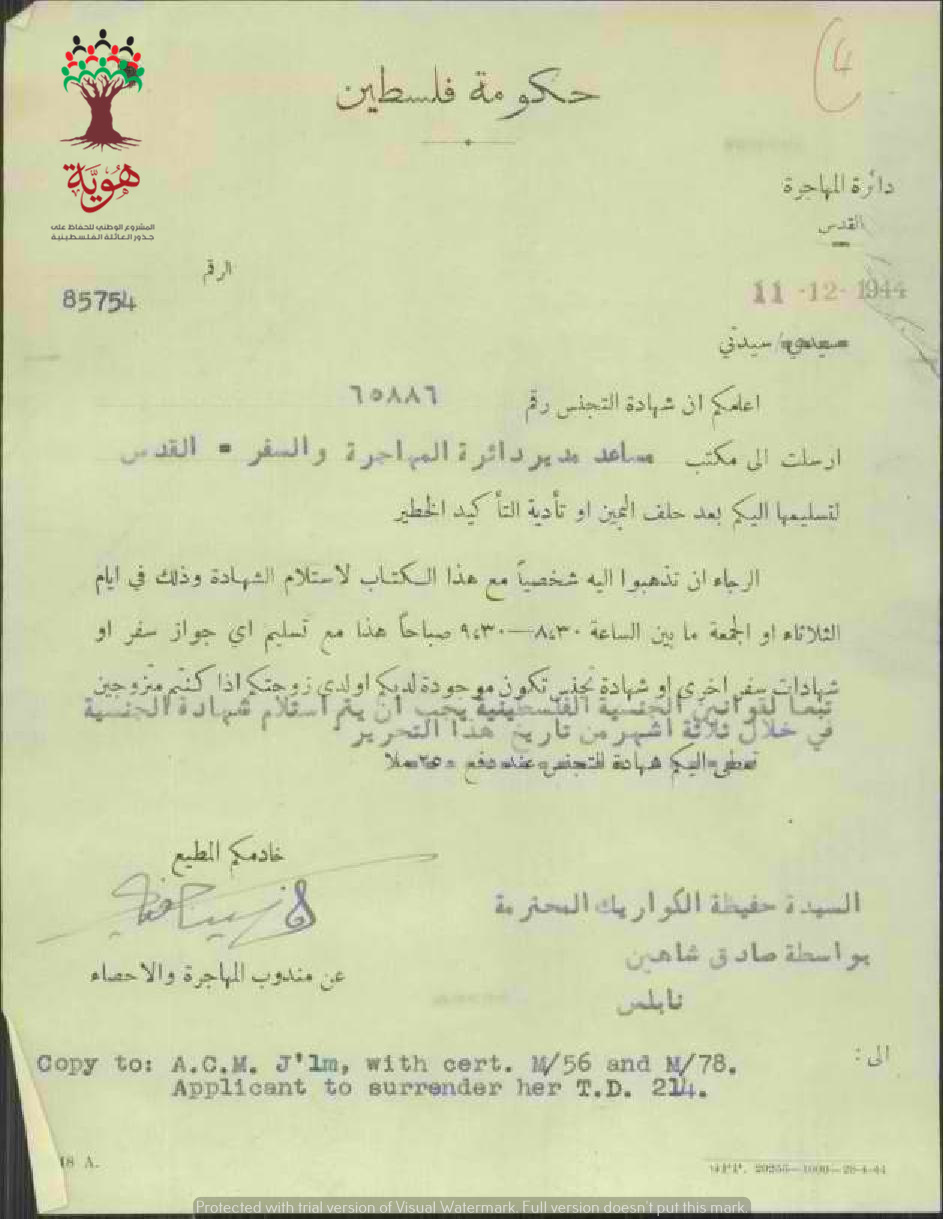 4
حكومة فلسطين
هوية
المشروع الوطني للحفاظ على
جذور العائلة الفلسطينية
دائرة المهاجرة
القدس
الرقم
85754
11 -12- 1944
سيدي / سيدتي
اعلمكم ان شهادة التجنس رقم ٦٥٨٨٦
ارسلت الى مكتب مساعد مدير دائرة المهاجرة والسفر = القدس
لتسليمها اليكم بعد حلف اليمين او تأدية التأكيد الخطير
الرجاء ان تذهبوا اليه شخصياً مع هذا الكتاب لاستلام الشهادة وذلك في ايام
الثلاثاء او الجمعة ما بين الساعة ٨،٣٠—٩،٣٠ صباحاً هذا مع تسليم اي جواز سفر او
شهادات سفر اخرى او شهادة تجنس تكون موجودة لديكم او لدى زوجتكم اذا كنتم متزوجين
تبعا لقوانين الجنسية الفلسطينية يجب ان يتم استلام شهادة الجنسية
في خلال ثلاثة اشهر من تاريخ هذا التحرير
تعطى اليكم شهادة التجنس عند دفع
خادمكم المطيع
عن مندوب المهاجرة والاحصاء
السيدة حفيظة الكواريك المحترمة
بواسطة صادق شاهين
نابلس
الى :
Copy to: A.C.M. J'lm, with cert. M/56 and M/78.
Applicant to surrender her T.D. 214.
18 A.
20255—1000—28-4-44
Protected with trial version of Visual Watermark. Full version doesn't put this mark.